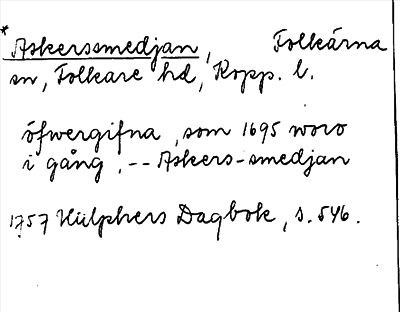 * Askerssmedjan, Folkärna
sn, Folkare hd, Kopp. l.
öfwergifna, som 1695 woro
i gång, -- Askers-smedjan
1757 Hülphers Dagbok, s. 546.